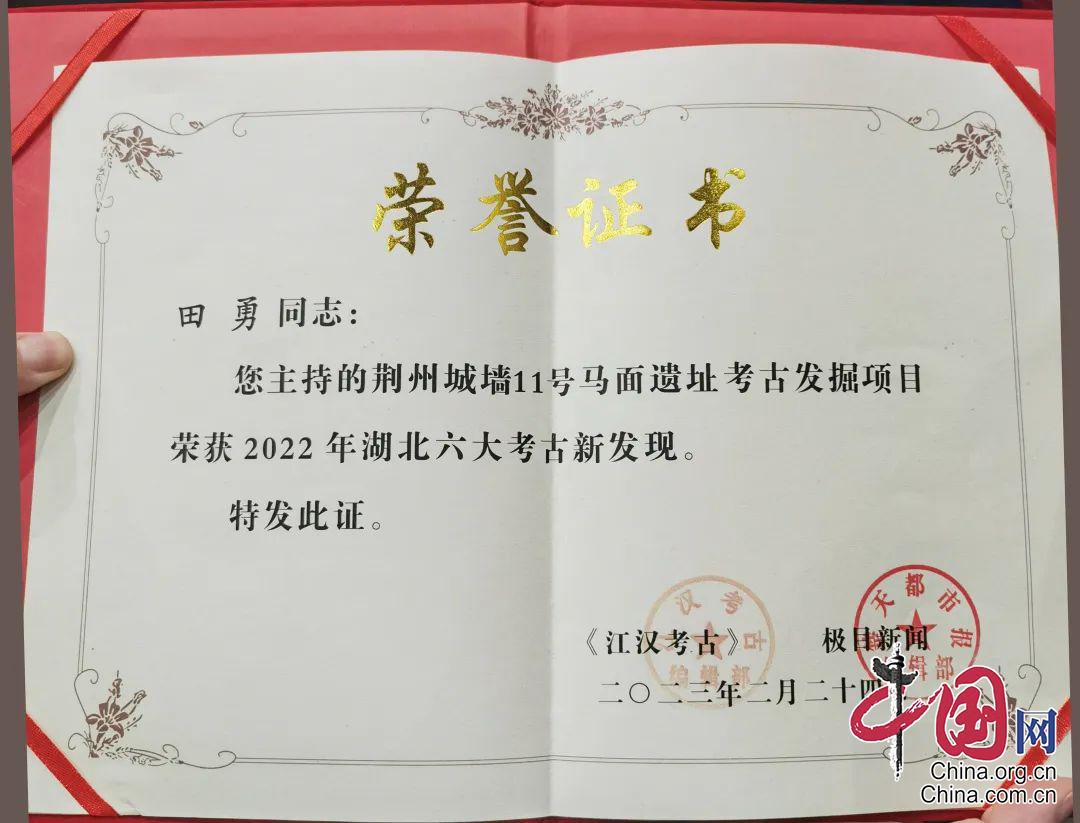 荣誉证书
田 勇 同志：
您主持的荆州城墙11号马面遗址考古发掘项目
荣获 2022 年湖北六大考古新发现。
特发此证。
汉考古
编辑部
天都市报
辑部
《江汉考古》 极目新闻
二〇二三年二月二十四
中国网
China.org.cn
China.com.cn